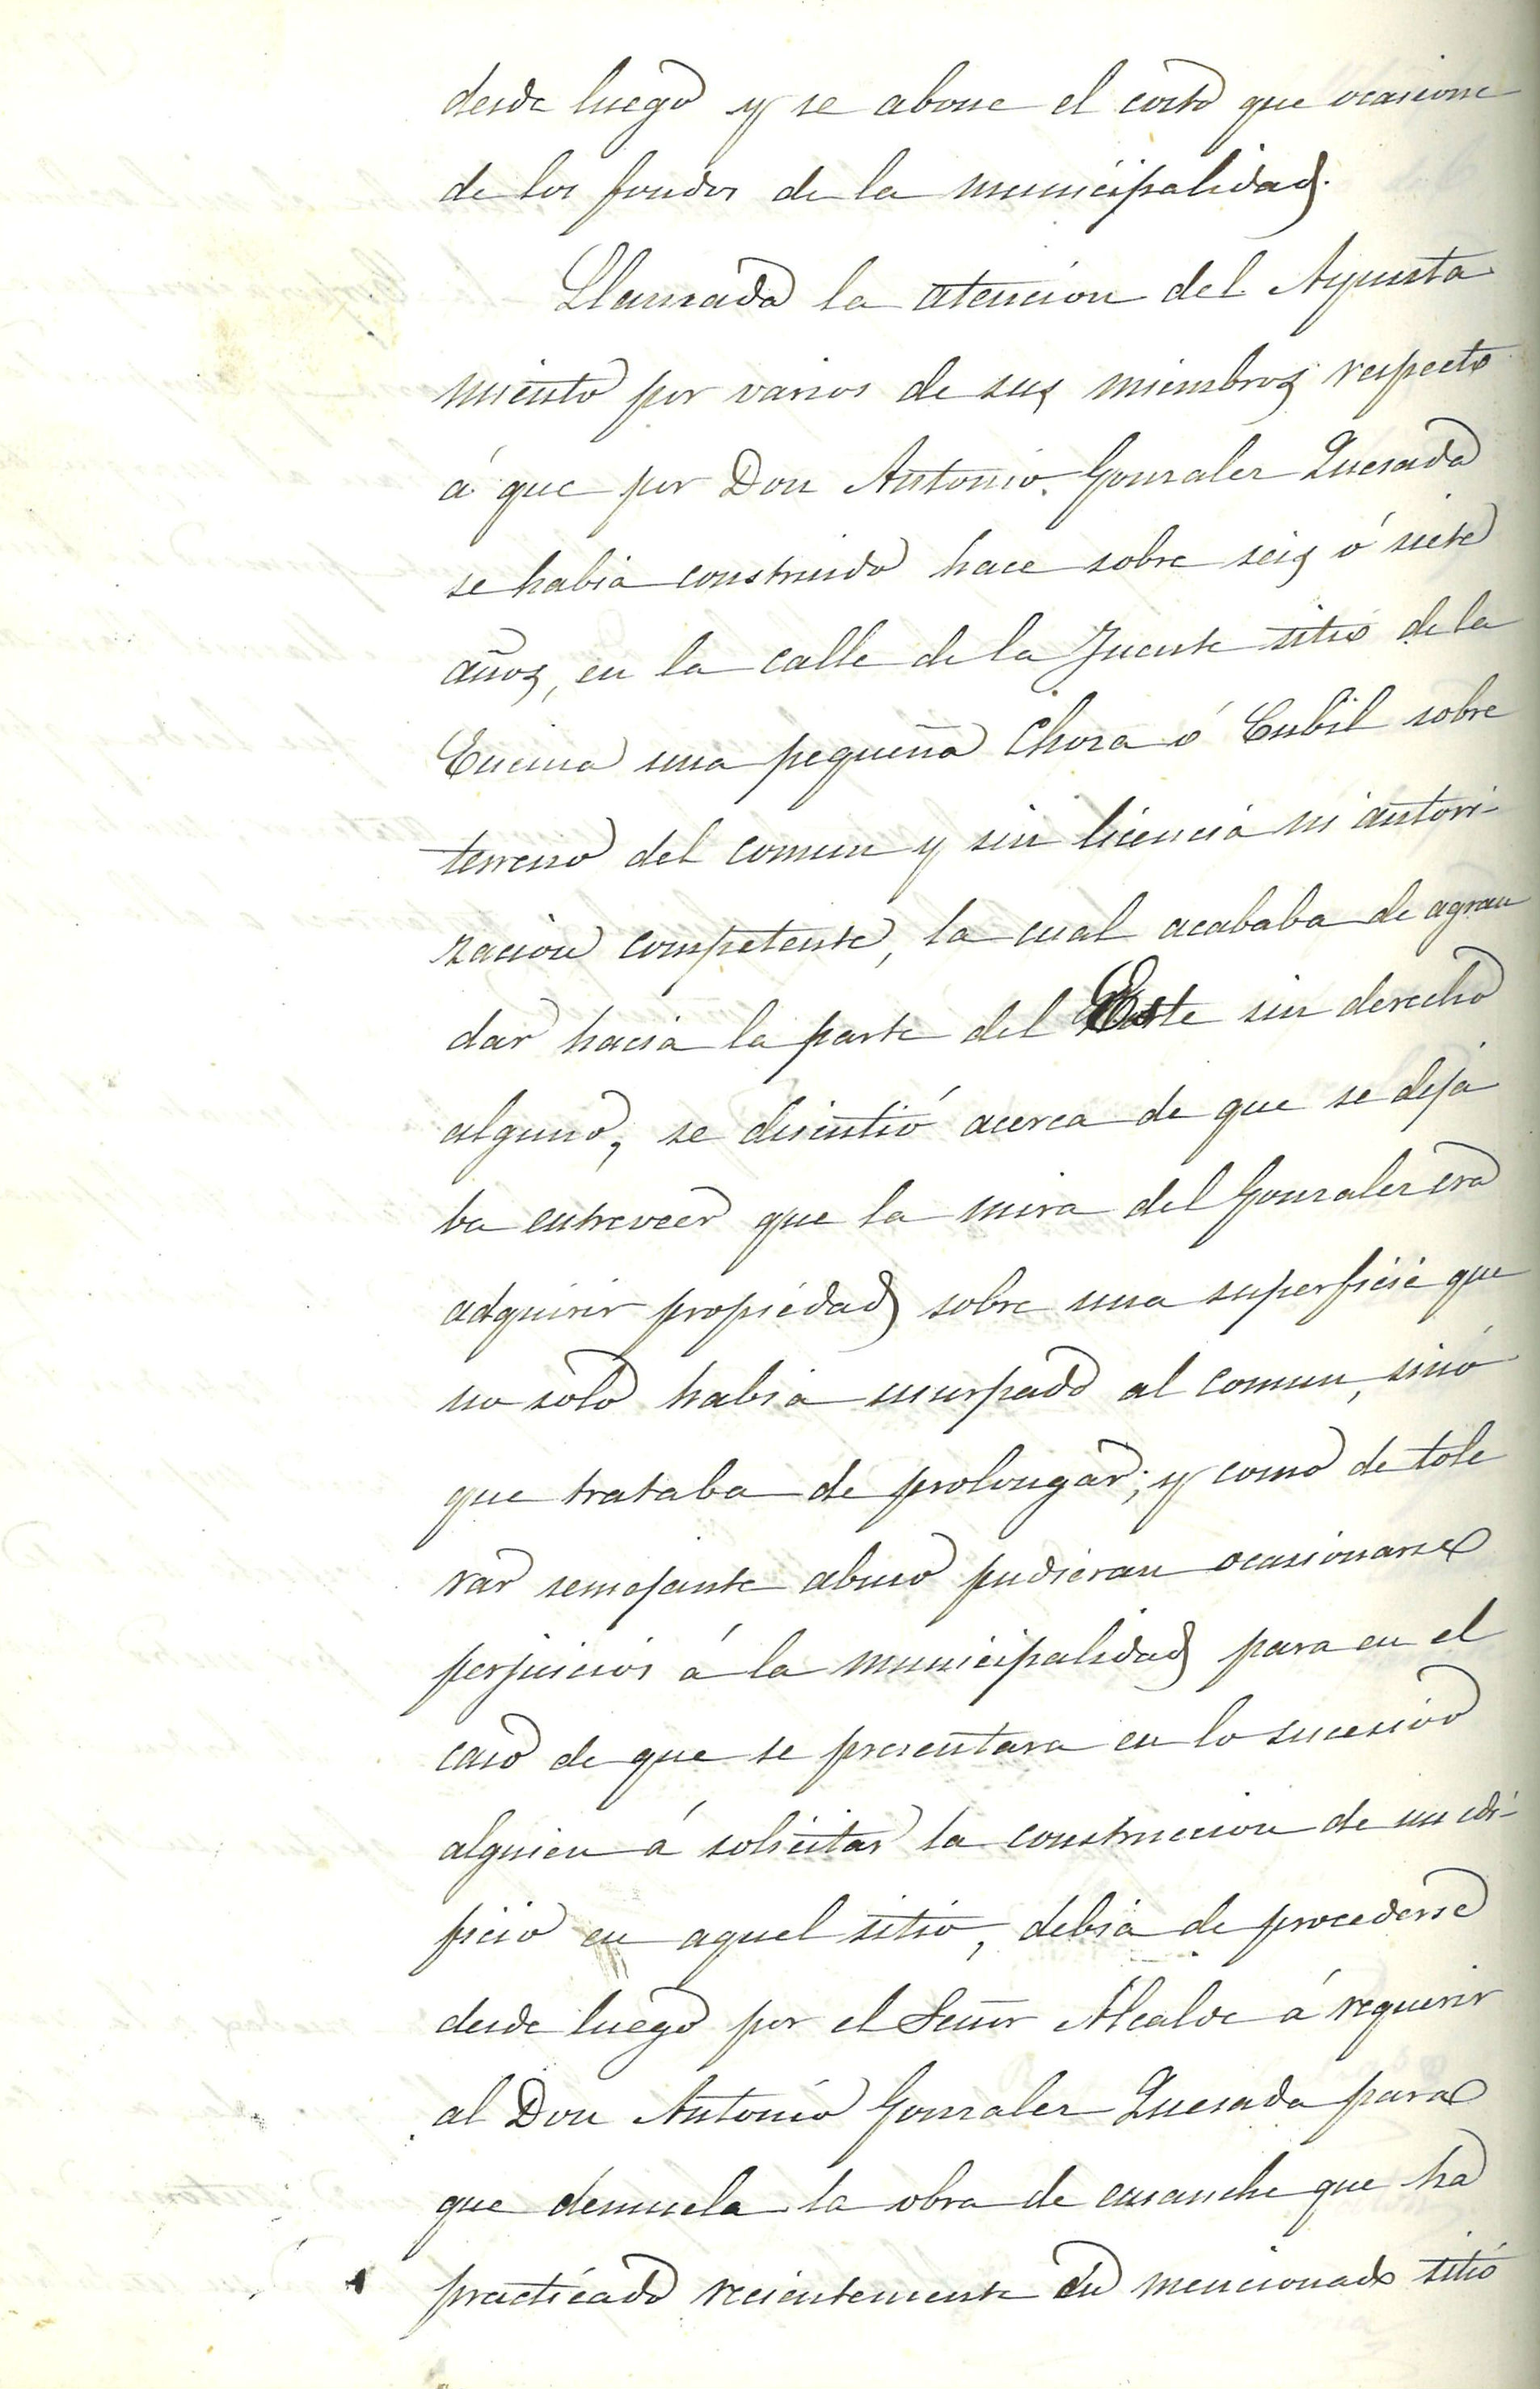 desde luego y se abone el costo que ocasione
de los fondos de la municipalidad.
Llamada la atencion del Ayunta
miento por varios de sus miembros respecto
á que por Don Antonio Gonzalez Quesada
se habia construido hace sobre seis ó siete
años, en la calle de la Fuente sitio de la
Encina una pequeña Choza ó Cubil sobre
terreno del comun y sin licencia ni autori-
zacion competente, la cual acababa de agran
dar hacia la parte del Este sin derecho
alguno, se discutió acerca de que se deja
ba entreveer que la mira del Gonzalez era
adquirir propiedad sobre una superficie que
no solo habia usurpado al comun, sinó
que trataba de prolongar; y como de tole
rar semejante abuso pudieran ocasionarse
perjuicios á la municipalidad para en el
caso de que se presentara en lo sucesivo
alguien á solicitar la construccion de un edi-
ficio en aquel sitio, debia de procederse
desde luego por el Señor Alcalde á requerir
al Don Antonio Gonzalez Quesada para
que demuela la obra de ensanche que ha
practicado recientemente en mencionado sitio